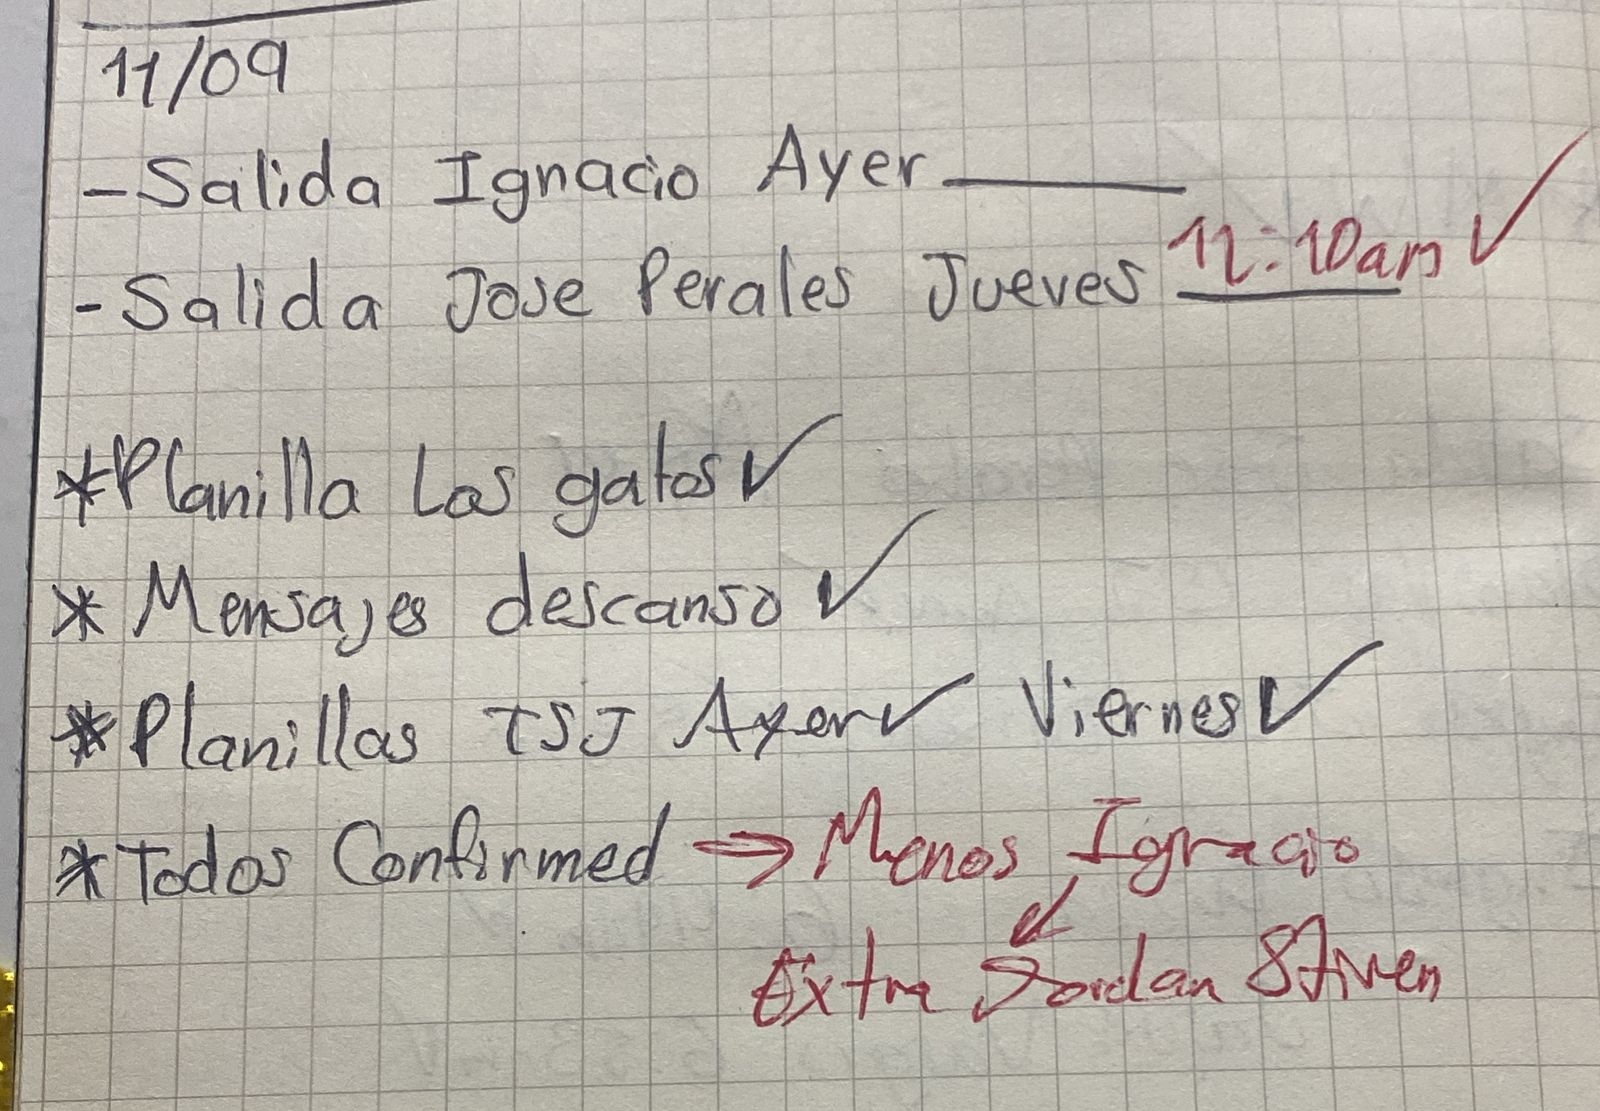 11/09
- Salida Ignacio Ayer
- Salida Jose Perales Jueves 12:10am ✓
* Planilla Los gatos ✓
* Mensajes descanso ✓
* Planillas TSJ Ayer ✓ Viernes ✓
* Todos Confirmed ⇒ Menos Ignacio
Extra Jordan Stiven